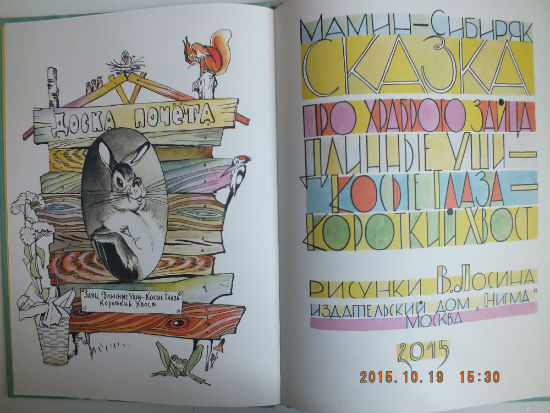 ДОСКА ПОЧЁТА
"Заяц Длинные Уши-Косые Глаза-
Короткий Хвост"
МАМИН-СИБИРЯК
СКАЗКА
ПРО ХРАБРОГО ЗАЙЦА
ДЛИННЫЕ УШИ-
КОСЫЕ ГЛАЗА-
КОРОТКИЙ ХВОСТ
РИСУНКИ В.ЛОСИНА
ИЗДАТЕЛЬСКИЙ ДОМ „НИГМА"
МОСКВА
2015
2015.10.19 15:30